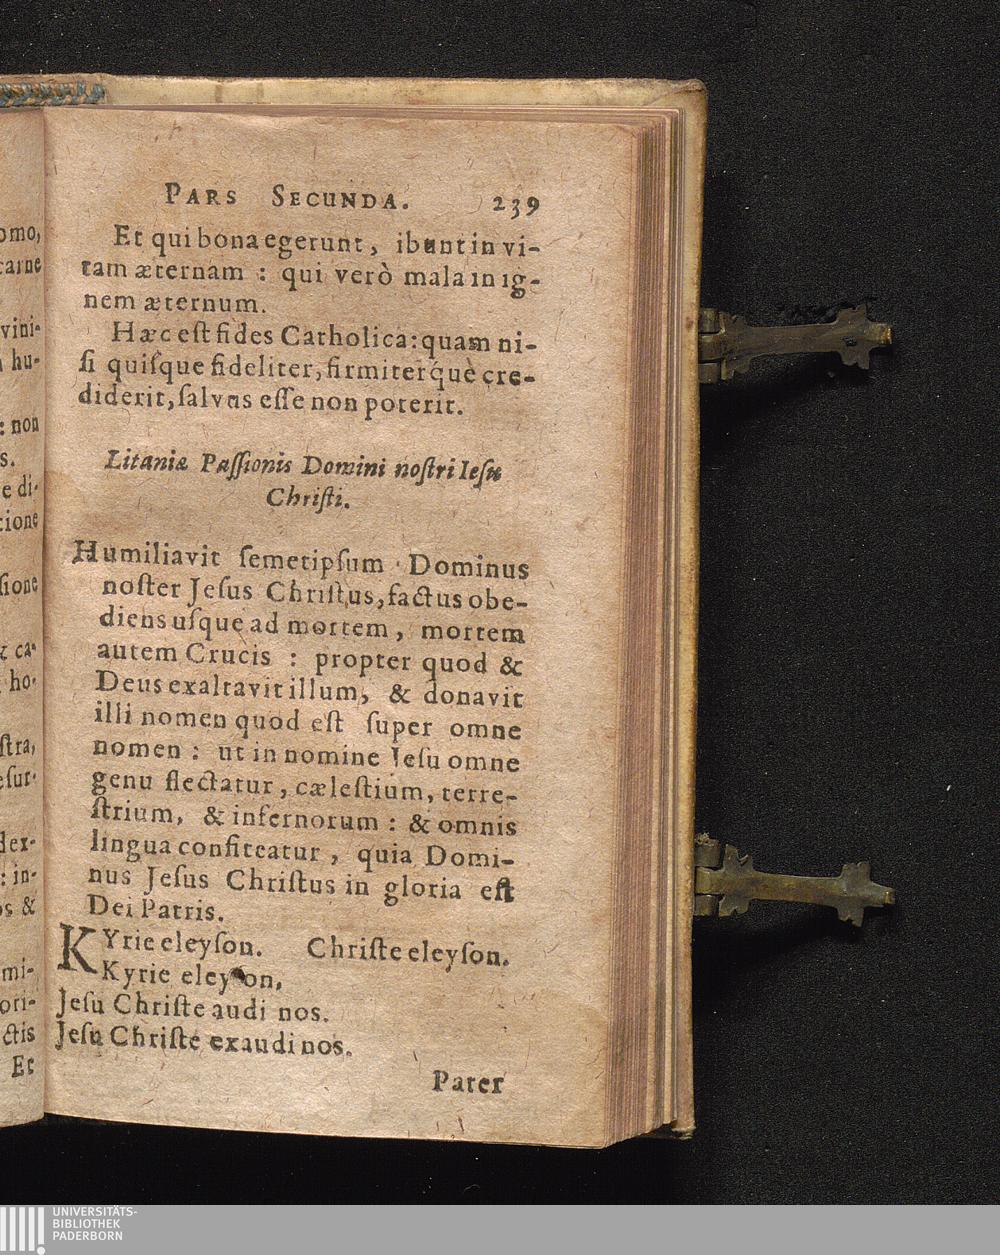 PARS SECUNDA. 239
Et qui bona egerunt, ibunt in vi-
tam æternam : qui verò mala in ig-
nem æternum.
Hæc eſt fides Catholica: quam ni-
ſi quiſque fideliter, firmiterq́uè cre-
diderit, ſalvus eſſe non poterit.
Litaniæ Paſſionis Domini noſtri Ieſu
Chriſti.
Humiliavit ſemetipſum Dominus
noſter Jeſus Chriſtus, factus obe-
diens uſque ad mortem, mortem
autem Crucis : propter quod &
Deus exaltavit illum, & donavit
illi nomen quod eſt ſuper omne
nomen : ut in nomine Jeſu omne
genu flectatur, cæleſtium, terre-
ſtrium, & infernorum : & omnis
lingua confiteatur, quia Domi-
nus Jeſus Chriſtus in gloria eſt
Dei Patris.
KYrie eleyſon. Chriſte eleyſon.
Kyrie eleyſon,
Jeſu Chriſte audi nos.
Jeſu Chriſte exaudi nos.
Pater
omo,
carne
vini-
hu-
: non
s.
e di-
tione
ſione
& ca-
ho-
ſtra,
eſur-
dex-
: in-
os &
mi-
ori-
ctis
Et
UNIVERSITÄTS-
BIBLIOTHEK
PADERBORN